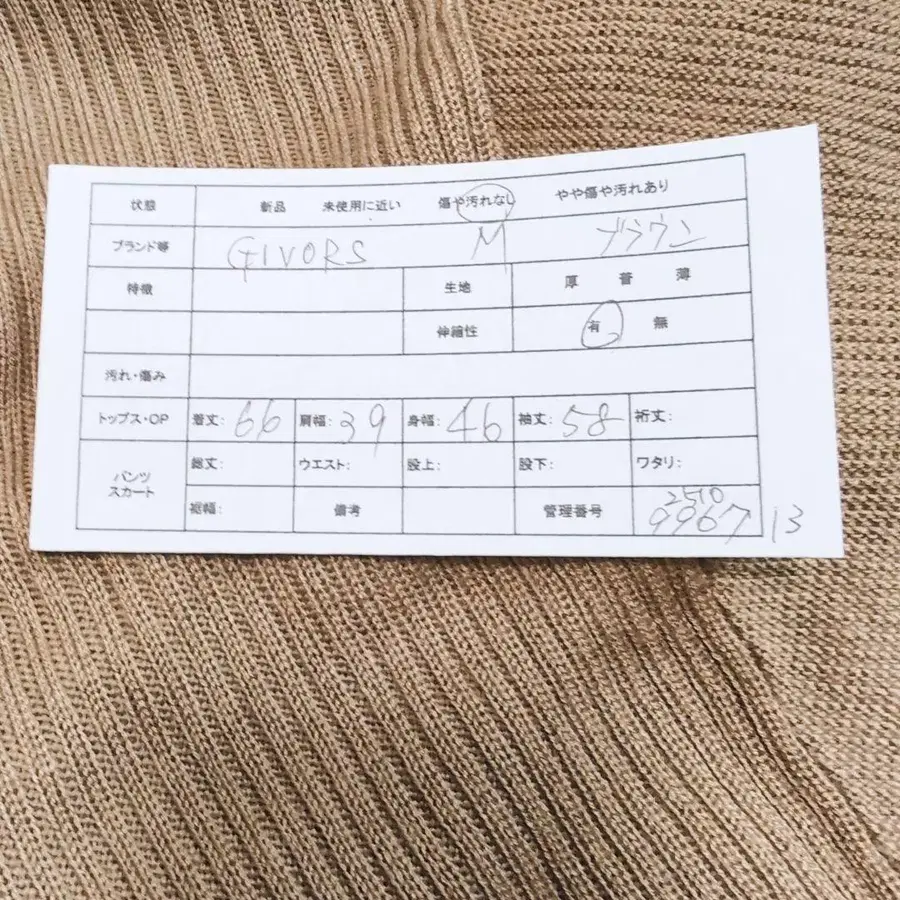 状態 新品 未使用に近い 傷や汚れなし やや傷や汚れあり
ブランド等 GIVORS M ブラウン
特徴 生地 厚 普 薄
伸縮性 有 無
汚れ・傷み
トップス・OP 着丈: 66 肩幅: 39 身幅: 46 袖丈: 58 裄丈:
パンツ スカート 総丈: ウエスト: 股上: 股下: ワタリ:
裾幅: 備考 管理番号 2510
9967 13